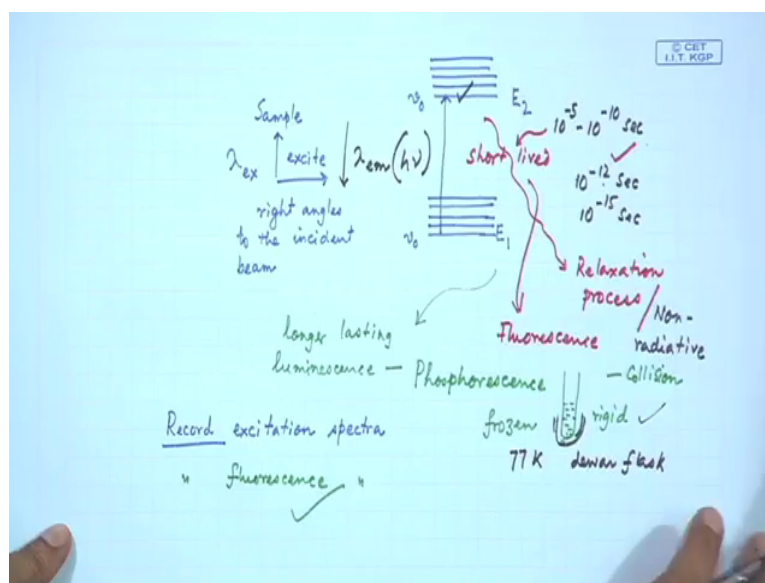 © CET
I.I.T. KGP
Sample
λex
excite
right angles
to the incident
beam
λem (hν)
v₀
E₂
v₀
E₁
short lived
10⁻⁵ - 10⁻¹⁰ sec
10⁻¹² sec
10⁻¹⁵ sec
Relaxation
process
/ Non-
radiative
fluorescence
- Collision
longer lasting
luminescence - Phosphorescence
frozen
rigid
77 K dewar flask
Record excitation spectra
" fluorescence "